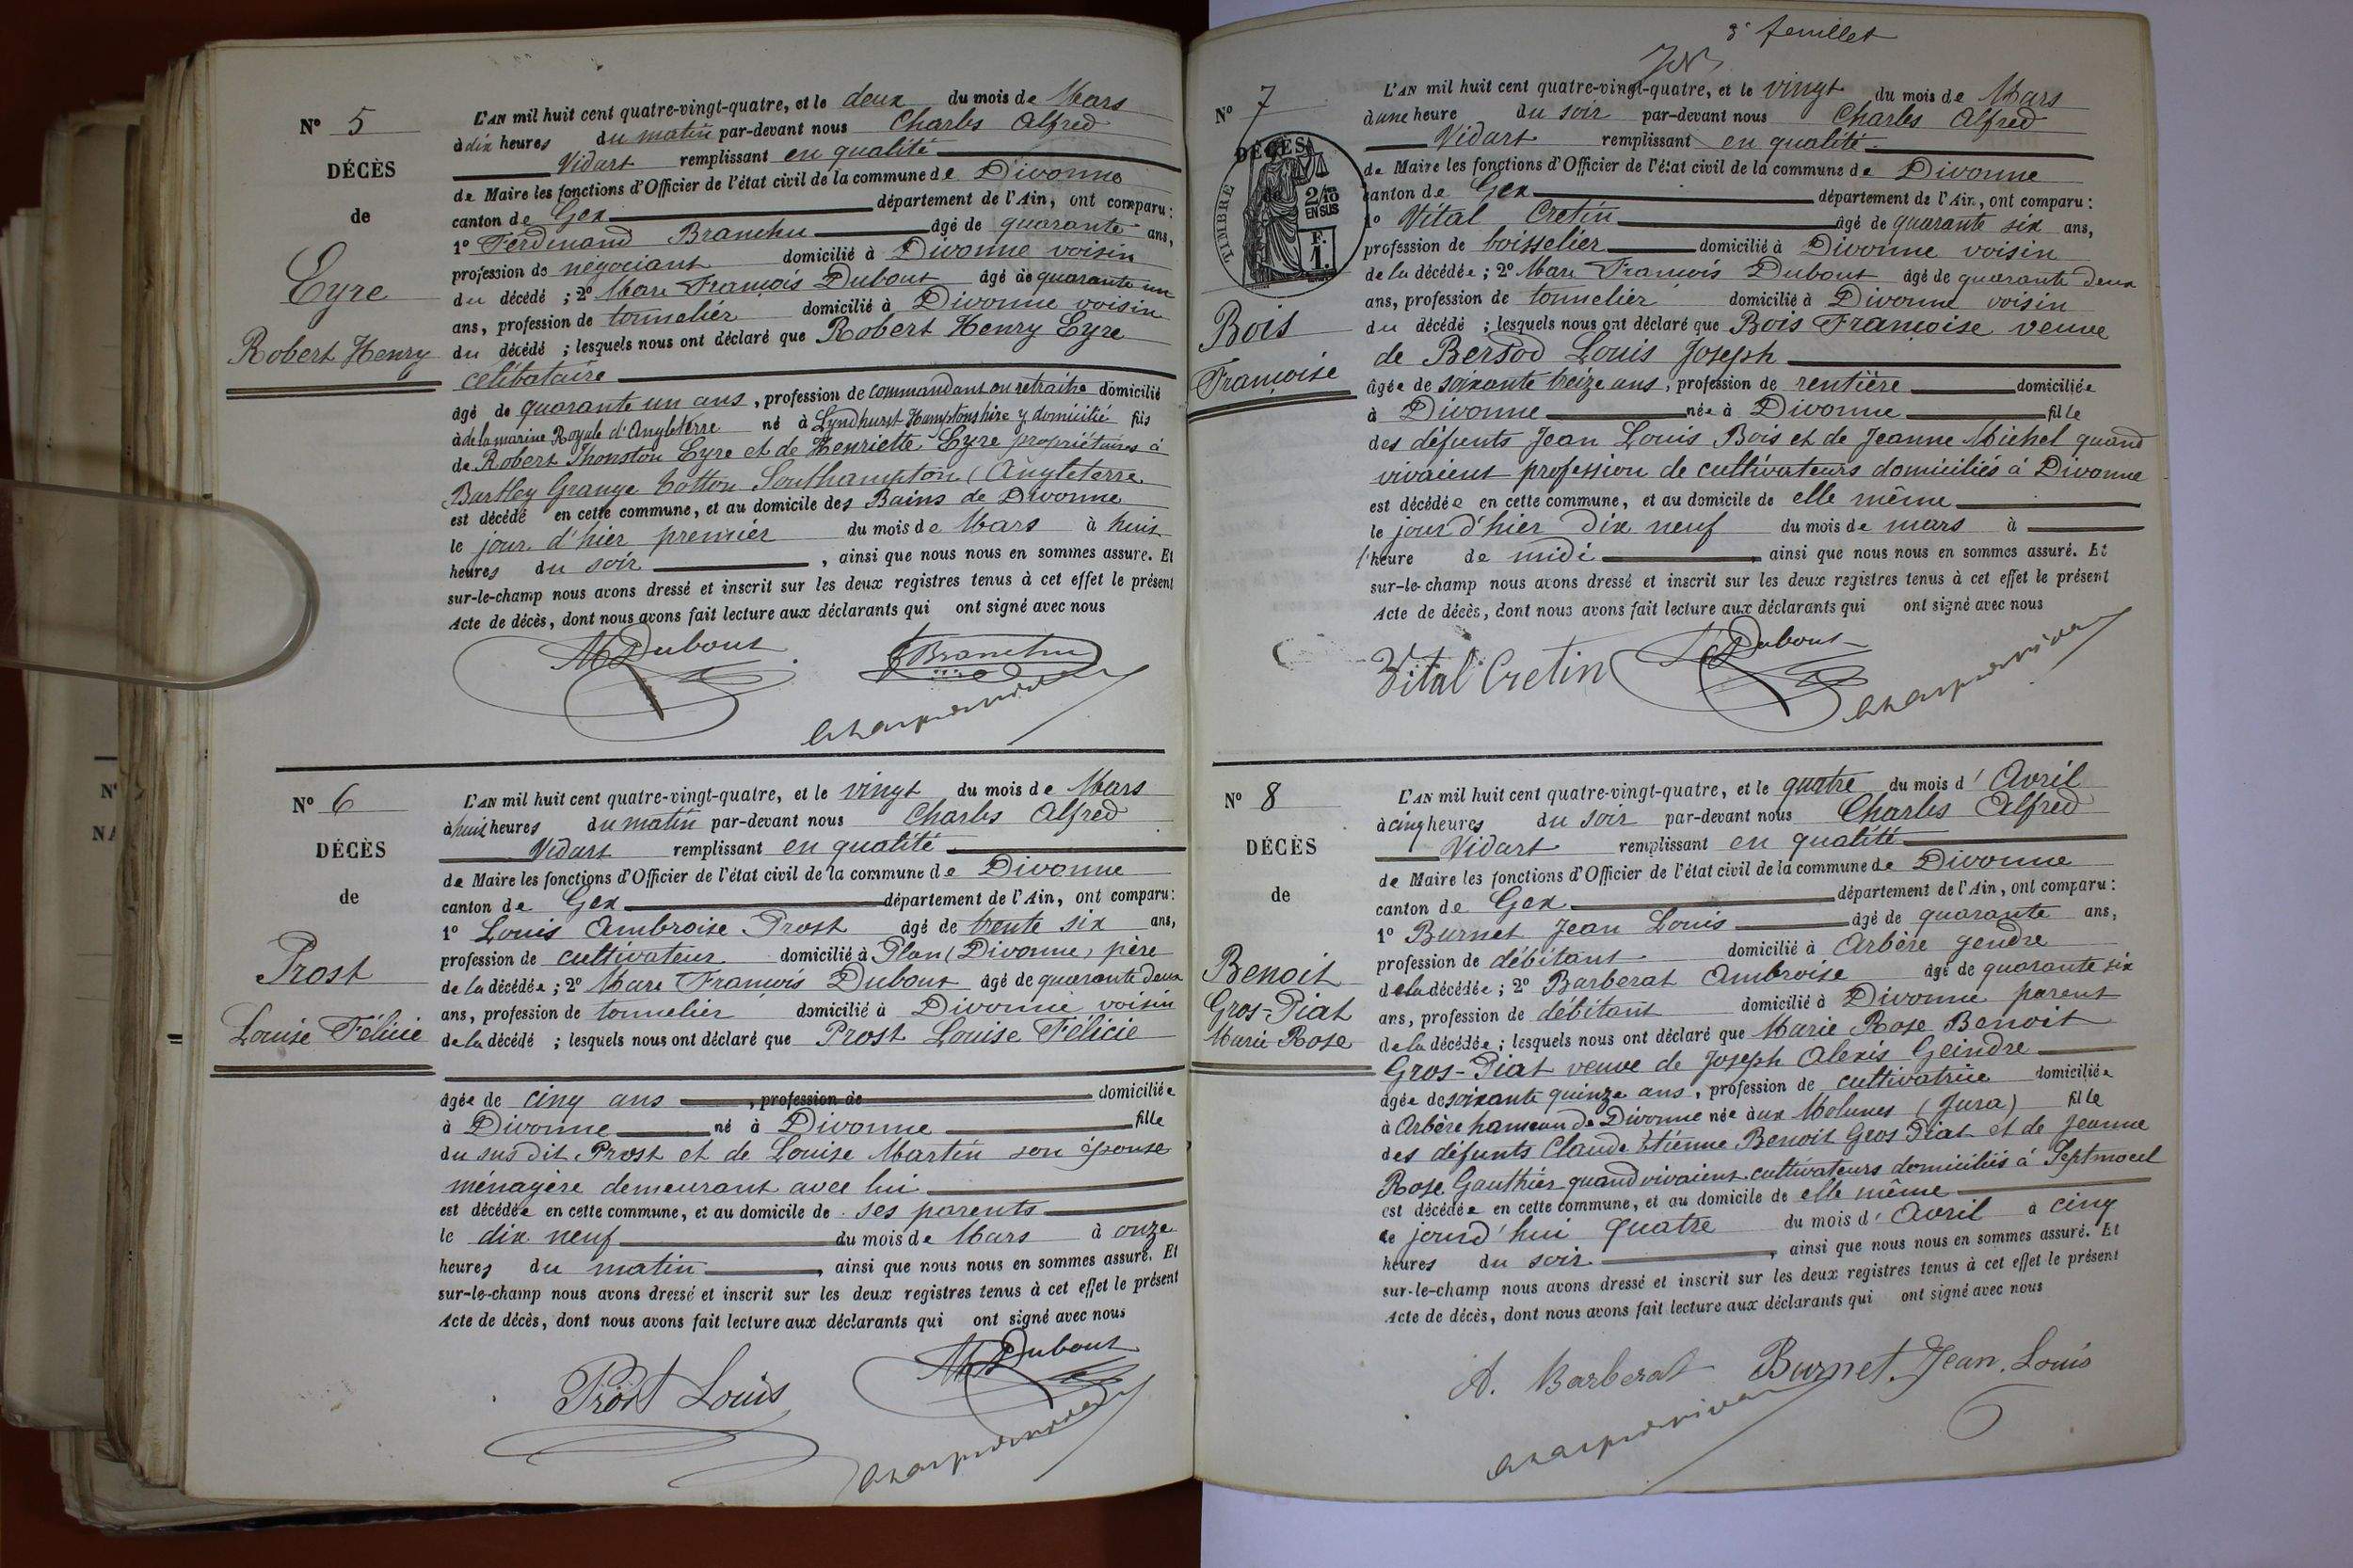 N° 5
DÉCÈS
de
Eyre
Robert Henry
L'AN mil huit cent quatre-vingt-quatre, et le deux du mois de Mars
à dix heures du matin par-devant nous Charles Alfred
Vidart remplissant en qualité
de Maire les fonctions d'Officier de l'état civil de la commune de Divonne
canton de Gex département de l'Ain, ont comparu :
1° Ferdinand Branchu âgé de quarante ans,
profession de négociant domicilié à Divonne voisin
du décédé ; 2° Marc François Dubout âgé de quarante un
ans, profession de tonnelier domicilié à Divonne voisin
du décédé ; lesquels nous ont déclaré que Robert Henry Eyre
célibataire
âgé de quarante un ans, profession de commandant en retraite domicilié
à de la marine Royale d'Angleterre né à Lyndhurst Hamptonshire y domicilié fils
de Robert Thonston Eyre et de Henriette Eyre propriétaires à
Bartley Grange Cotton Southampton (Angleterre
est décédé en cette commune, et au domicile des Bains de Divonne
le jour d'hier premier du mois de Mars à huit
heures du soir , ainsi que nous nous en sommes assuré. Et
sur-le-champ nous avons dressé et inscrit sur les deux registres tenus à cet effet le présent
Acte de décès, dont nous avons fait lecture aux déclarants qui ont signé avec nous
MF Dubout
F Branchu
N° 6
DÉCÈS
de
Prost
Louise Félicie
L'AN mil huit cent quatre-vingt-quatre, et le vingt du mois de Mars
à huit heures du matin par-devant nous Charles Alfred
Vidart remplissant en qualité
de Maire les fonctions d'Officier de l'état civil de la commune de Divonne
canton de Gex département de l'Ain, ont comparu :
1° Louis Ambroise Prost âgé de trente six ans,
profession de cultivateur domicilié à Plan (Divonne) père
de la décédée ; 2° Marc François Dubout âgé de quarante deux
ans, profession de tonnelier domicilié à Divonne voisin
de la décédé ; lesquels nous ont déclaré que Prost Louise Félicie
âgée de cinq ans , profession de domiciliée
à Divonne né à Divonne fille
du sus dit Prost et de Louise Martin son épouse
ménagère demeurant avec lui
est décédée en cette commune, et au domicile de ses parents
le dix neuf du mois de Mars à onze
heures du matin , ainsi que nous nous en sommes assuré. Et
sur-le-champ nous avons dressé et inscrit sur les deux registres tenus à cet effet le présent
Acte de décès, dont nous avons fait lecture aux déclarants qui ont signé avec nous
Prost Louis
MF Dubout
3e feuillet
N° 7
DÉCÈS
TIMBRE
2/10
EN SUS
F.
1.
Bois
Françoise
L'AN mil huit cent quatre-vingt-quatre, et le vingt du mois de Mars
à une heure du soir par-devant nous Charles Alfred
Vidart remplissant en qualité
de Maire les fonctions d'Officier de l'état civil de la commune de Divonne
canton de Gex département de l'Ain, ont comparu :
1° Vital Cretin âgé de quarante six ans,
profession de boisselier domicilié à Divonne voisin
de la décédée ; 2° Marc François Dubout âgé de quarante deux
ans, profession de tonnelier domicilié à Divonne voisin
du décédé ; lesquels nous ont déclaré que Bois Françoise veuve
de Bersod Louis Joseph
âgée de soixante treize ans, profession de rentière domiciliée
à Divonne née à Divonne fille
des défunts Jean Louis Bois et de Jeanne Michel quand
vivaient profession de cultivateurs domiciliés à Divonne
est décédée en cette commune, et au domicile de elle même
le jour d'hier dix neuf du mois de mars à
l'heure de midi , ainsi que nous nous en sommes assuré. Et
sur-le-champ nous avons dressé et inscrit sur les deux registres tenus à cet effet le présent
Acte de décès, dont nous avons fait lecture aux déclarants qui ont signé avec nous
Vital Cretin
MF Dubout
N° 8
DÉCÈS
de
Benoit
Gros-Piat
Marie Rose
L'AN mil huit cent quatre-vingt-quatre, et le quatre du mois d'Avril
à cinq heures du soir par-devant nous Charles Alfred
Vidart remplissant en qualité
de Maire les fonctions d'Officier de l'état civil de la commune de Divonne
canton de Gex département de l'Ain, ont comparu :
1° Burnet Jean Louis âgé de quarante ans,
profession de débitant domicilié à Arbère gendre
de la décédée ; 2° Barberat Ambroise âgé de quarante six
ans, profession de débitant domicilié à Divonne parent
de la décédée ; lesquels nous ont déclaré que Marie Rose Benoit
Gros-Piat veuve de Joseph Alexis Geindre
âgée de soixante quinze ans, profession de cultivatrice domiciliée
à Arbère hameau de Divonne née aux Molunes (Jura) fille
des défunts Claude Etienne Benoit Gros Piat et de Jeanne
Rose Gauthier quand vivaient cultivateurs domiciliés à Septmocel
est décédée en cette commune, et au domicile de elle même
le jourd'hui quatre du mois d'Avril à cinq
heures du soir , ainsi que nous nous en sommes assuré. Et
sur-le-champ nous avons dressé et inscrit sur les deux registres tenus à cet effet le présent
Acte de décès, dont nous avons fait lecture aux déclarants qui ont signé avec nous
A. Barberat Burnet Jean Louis